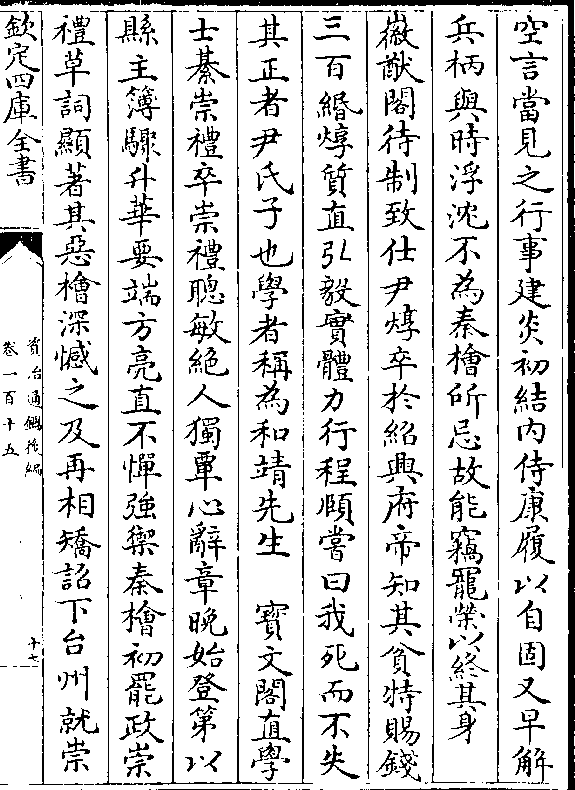 空言當見之行事建炎初結內侍康履以自固又早解
兵柄與時浮沈不為秦檜所忌故能竊寵榮以終其身
徽猷閣待制致仕尹焞卒於紹興府帝知其貧特賜錢
三百緡焞質直弘毅實體力行程頤嘗曰我死而不失
其正者尹氏子也學者稱為和靖先生　寳文閣直學
士綦崇禮卒崇禮聰敏絶人獨覃心辭章晚始登第以
縣主簿驟升華要端方亮直不憚強禦秦檜初罷政崇
禮草詞顯著其惡檜深憾之及再相矯詔下台州就崇
欽定四庫全書
資治通鑑後編
卷一百十五
十七